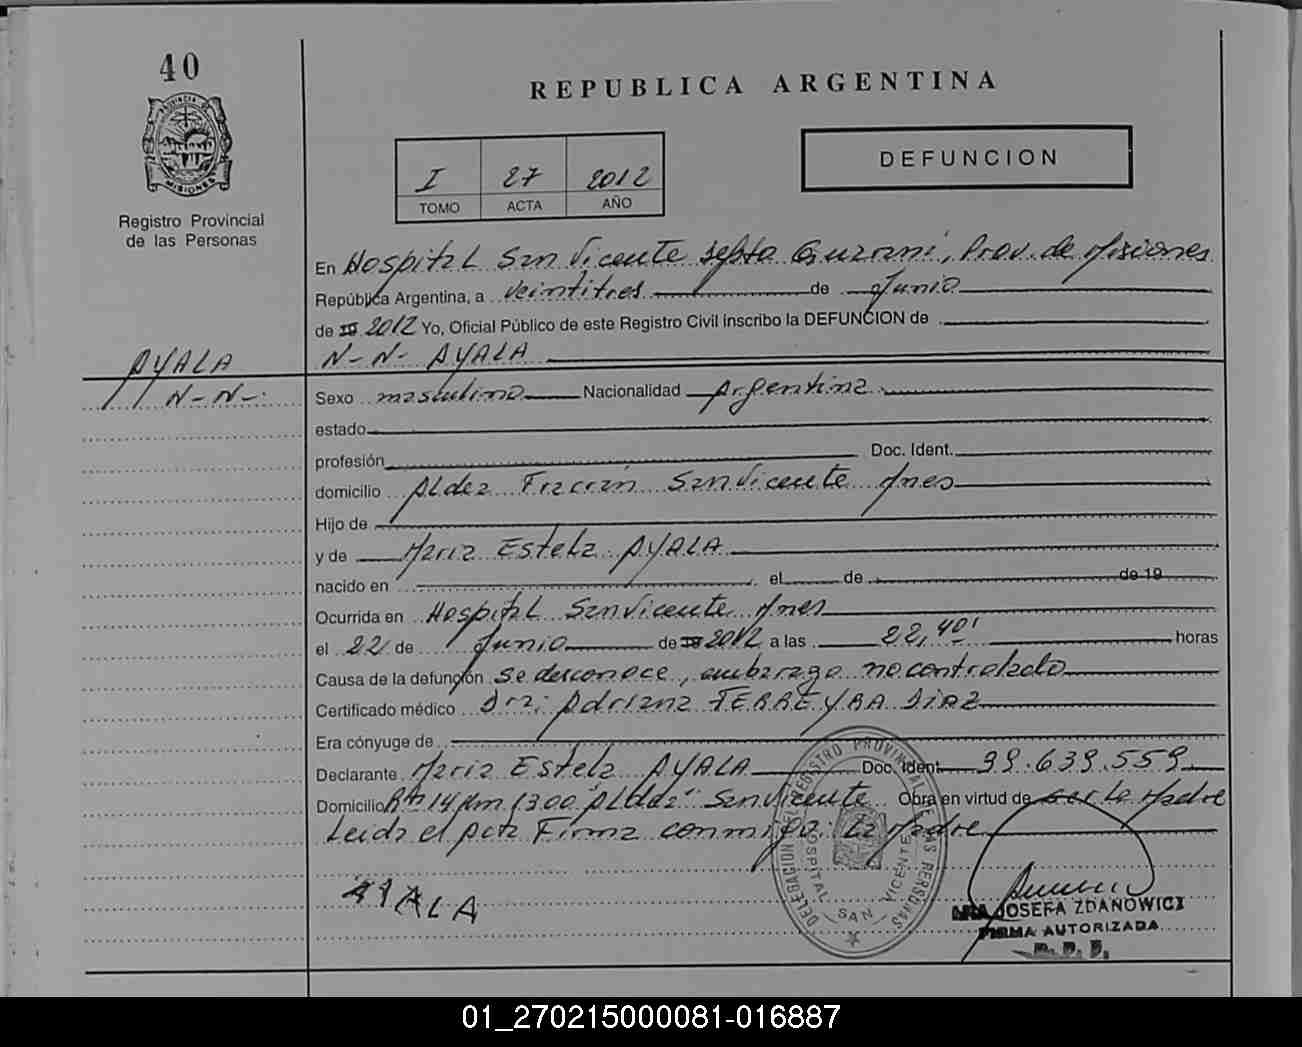 40
REPUBLICA ARGENTINA
PROVINCIA DE MISIONES
Registro Provincial
de las Personas
I 27 2012
TOMO ACTA AÑO
DEFUNCION
En Hospital San Vicente Guarani, Prov. de Misiones
República Argentina, a veintitres de Junio
de 2012 Yo, Oficial Público de este Registro Civil inscribo la DEFUNCION de
N-N- AYALA
AYALA
N-N-
Sexo masculino Nacionalidad Argentina
estado
profesión Doc. Ident.
domicilio Aldea San Vicente Mnes
Hijo de
y de Maria Estela AYALA
nacido en el de de 19
Ocurrida en Hospital San Vicente Mnes
el 22 de Junio de 2012 a las 22,40' horas
Causa de la defunción se desconoce, embarazo no controlado
Certificado médico Dra. Adriana FERREYRA DIAZ
Era cónyuge de
Declarante Maria Estela AYALA Doc. Ident. 39.639.559
Domicilio Rta 14 Km 1300 "Aldea" San Vicente Obra en virtud de ser la Madre
Leida el acta Firma conmigo: La Madre
AYALA
DELEGACION DEL REGISTRO PROVINCIAL DE LAS PERSONAS
HOSPITAL SAN VICENTE
JOSEFA ZDANOWICZ
FIRMA AUTORIZADA
R. P. P.
01_270215000081-016887